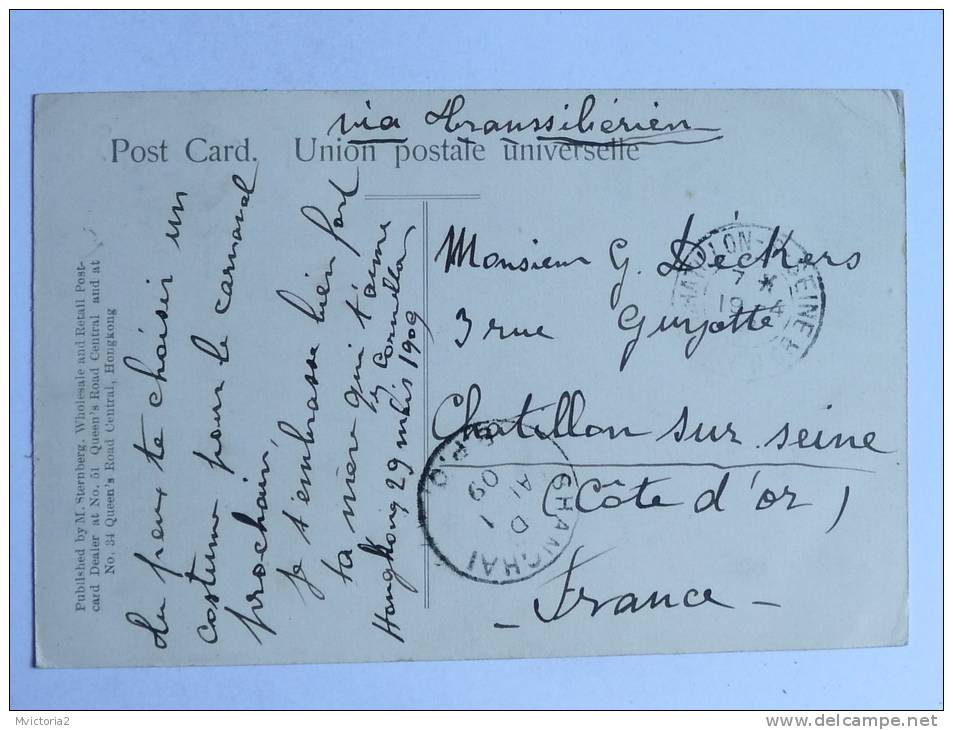 via transsibérien
Post Card. Union postale universelle
Published by M. Sternberg. Wholesale and Retail Post-
card Dealer at No. 51 Queen's Road Central and at
No. 34 Queen's Road Central, Hongkong
tu peux te choisir un
costume pour le carnaval
prochain
je t'embrasse bien fort
ta mère qui t'aime
Hongkong 29 mars 1909
Monsieur G. Déckers
3 rue Guyotte
Chatillon sur seine
(Côte d'or)
- France -
SHANGHAI
Mvictoria2
www.delcampe.net